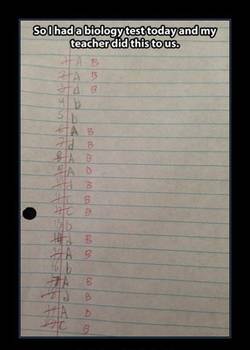 So I had a biology test today and my
teacher did this to us.
A B
A B
d B
4 b
5 b
A B
d B
A B
A B
d B
C B
C B
b
d B
A B
b
A B
d B
A B
C B